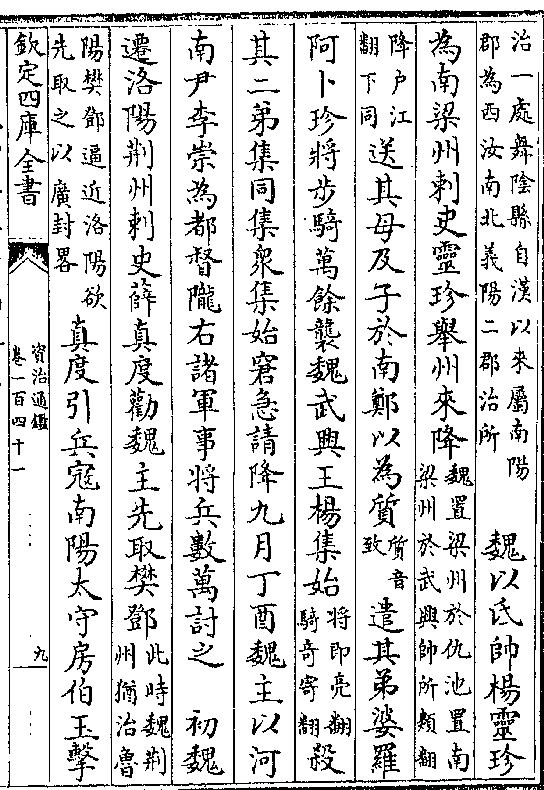 治一處舞隂縣自漢以來屬南陽
郡為西汝南北義陽二郡治所
魏以氐帥楊靈珍
為南梁州刺史靈珍舉州來降
魏置梁州於仇池置南
梁州於武興帥所類翻
降户江
翻下同
送其母及子於南鄭以為質
質音
致
遣其弟婆羅
阿卜珍將步騎萬餘襲魏武興王楊集始
將即亮翻
騎奇寄翻
殺
其二弟集同集衆集始窘急請降九月丁酉魏主以河
南尹李崇為都督隴右諸軍事將兵數萬討之 初魏
遷洛陽荆州刺史薛真度勸魏主先取樊鄧
此時魏荆
州猶治魯
陽樊鄧逼近洛陽欲
先取之以廣封畧
真度引兵寇南陽太守房伯玉擊
欽定四庫全書
資治通鑑
卷一百四十一
九